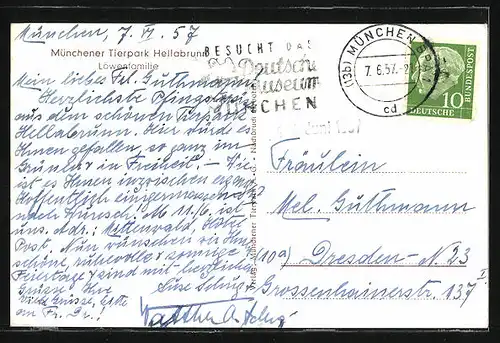 München, 7. VI. 57
Münchener Tierpark Hellabrunn
Löwenfamilie
Mein liebes Frl. Guthmann
Herzlichste Pfingstgrüße
aus dem schönen Tierpark
Hellabrunn. Hier würde es
Ihnen gefallen, so ganz im
Grünen in Freiheit. - Wie
ist es Ihnen inzwischen ergangen?
Hoffentlich einigermassen
nach Wunsch! Ab 11./6. ist
uns. Adr.: Mittenwald, Hotel
Post. Nun wünschen wir Ihnen
schöne, ruhevolle sonnige
Feiertage & sind mit herzlichen
Grüßen Ihre
viele Grüsse, bitte
an Fr. Dr.!
BESUCHT DAS
Deutsche
Museum
MÜNCHEN
(13b) MÜNCHEN
7. 6. 57
cd
10
DEUTSCHE
BUNDESPOST
Fräulein
Mel. Guthmann
(10a) Dresden - N. 23
Grossenhainerstr. 137
I